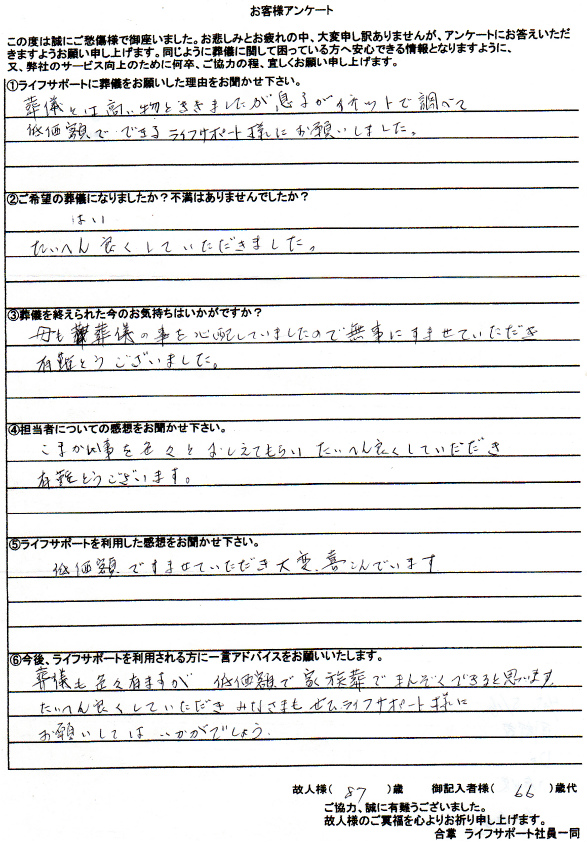 お客様アンケート
この度は誠にご愁傷様で御座いました。お悲しみとお疲れの中、大変申し訳ありませんが、アンケートにお答えいただ
きますようお願い申し上げます。同じように葬儀に関して困っている方へ安心できる情報となりますように、
又、弊社のサービス向上のために何卒、ご協力の程、宜しくお願い申し上げます。
①ライフサポートに葬儀をお願いした理由をお聞かせ下さい。
葬儀とは高い物とききましたが息子がイネットで調べて
低価額でできるライフサポート様にお願いしました。
②ご希望の葬儀になりましたか？不満はありませんでしたか？
はい
たいへん良くしていただきました。
③葬儀を終えられた今のお気持ちはいかがですか？
母も葬儀の事を心配していましたので無事にすませていただき
有難とうございました。
④担当者についての感想をお聞かせ下さい。
こまか事を色々とおしえてもらいたいへん良くしていただき
有難とうございます。
⑤ライフサポートを利用した感想をお聞かせ下さい。
低価額ですませていただき大変、喜こんでいます
⑥今後、ライフサポートを利用される方に一言アドバイスをお願いいたします。
葬儀も色々有ますが 低価額で家族葬でまんぞくできると思います。
たいへん良くしていただきみなさまもぜひライフサポート様に
お願いしてはいかがでしょう。
故人様( 87 )歳 御記入者様( 66 )歳代
ご協力、誠に有難うございました。
故人様のご冥福を心よりお祈り申し上げます。
合掌 ライフサポート社員一同